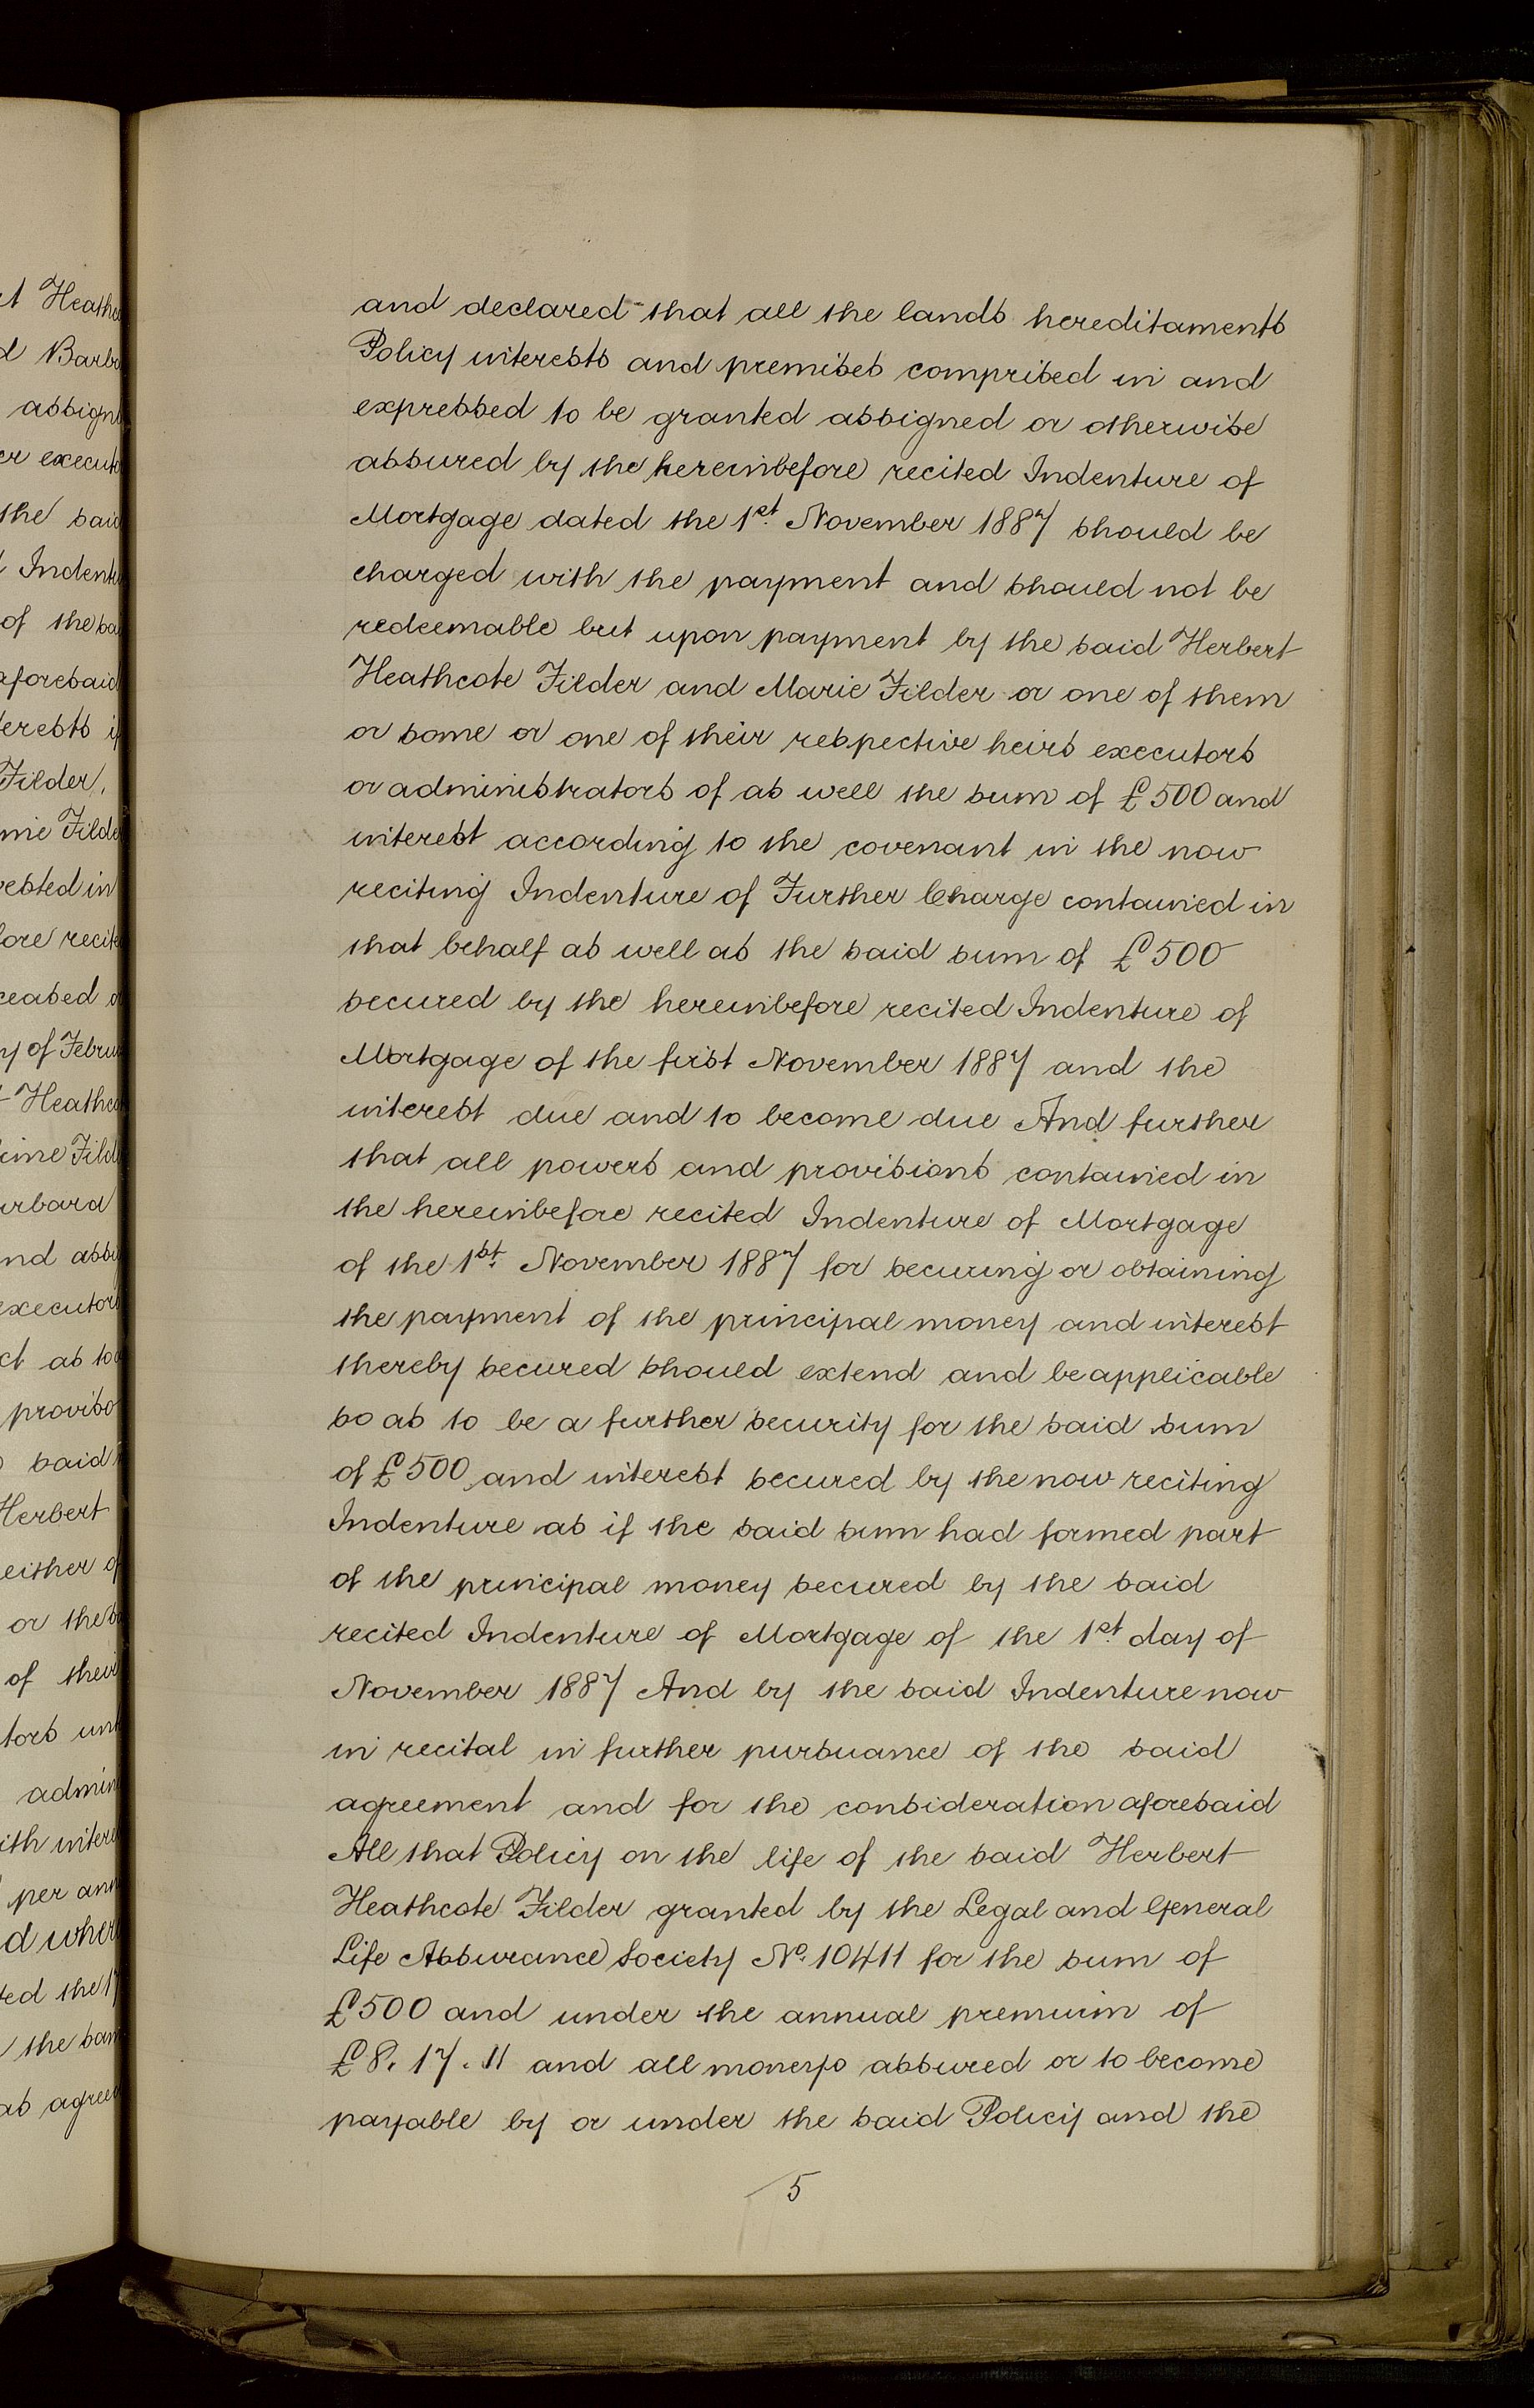 and declared that all the lands hereditaments
Policy interests and premises comprised in and
expressed to be granted assigned or otherwise
assured by the hereinbefore recited Indenture of
Mortgage dated the 1st November 1887 should be
charged with the payment and should not be
redeemable but upon payment by the said Herbert
Heathcote Filder and Marie Filder or one of them
or some or one of their respective heirs executors
or administrators of as well the sum of £500 and
interest according to the covenant in the now
reciting Indenture of Further Charge contained in
that behalf as well as the said sum of £500
secured by the hereinbefore recited Indenture of
Mortgage of the first November 1887 and the
interest due and to become due And further
that all powers and provisions contained in
the hereinbefore recited Indenture of Mortgage
of the 1st November 1887 for securing or obtaining
the payment of the principal money and interest
thereby secured should extend and be applicable
so as to be a further security for the said sum
of £500 and interest secured by the now reciting
Indenture as if the said sum had formed part
of the principal money secured by the said
recited Indenture of Mortgage of the 1st day of
November 1887 And by the said Indenture now
in recital in further pursuance of the said
agreement and for the consideration aforesaid
All that Policy on the life of the said Herbert
Heathcote Filder granted by the Legal and General
Life Assurance Society No. 10411 for the sum of
£500 and under the annual premium of
£8. 17. 11 and all moneys assured or to become
payable by or under the said Policy and the
5